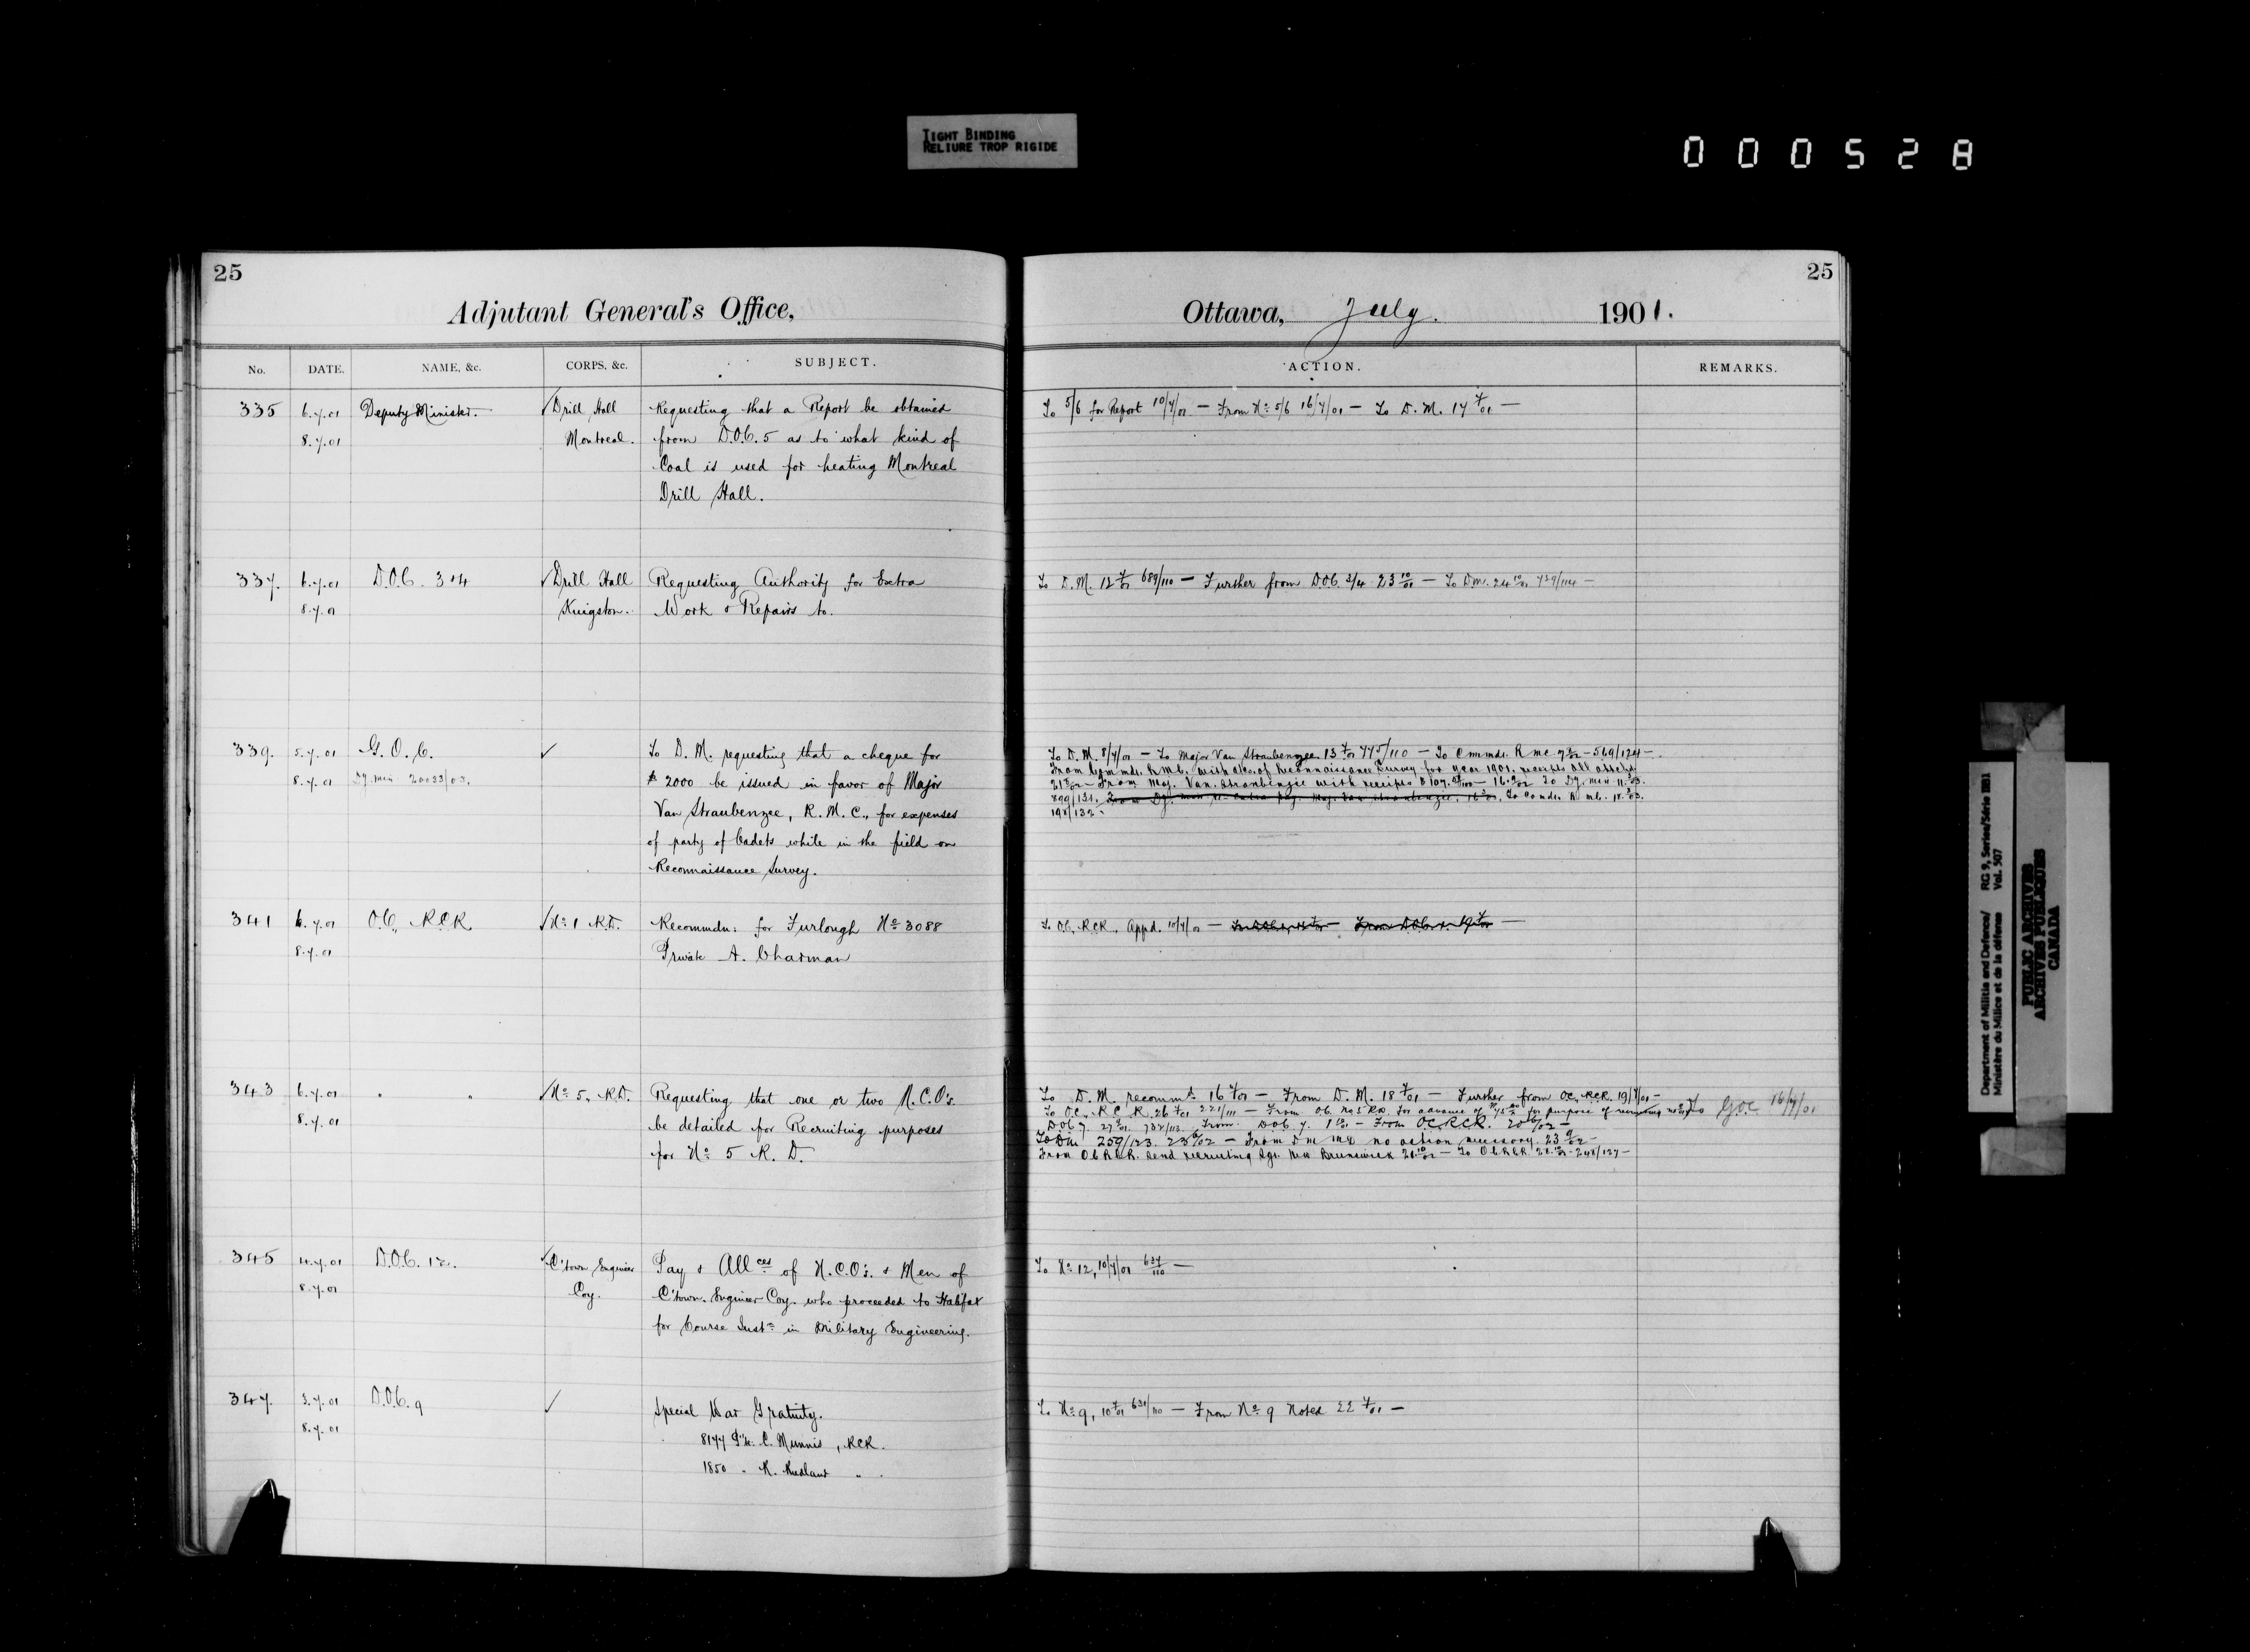 TIGHT BINDING
RELIURE TROP RIGIDE
000528
25
Adjutant General's Office,
No. DATE. NAME, &c. CORPS, &c. SUBJECT.
335 6.7.01 Deputy Minister. ✓Drill Hall Requesting that a Report be obtained
8.7.01 Montreal. from D.O.C. 5 as to what kind of
Coal is used for heating Montreal
Drill Hall.
337. 6.7.01 D.O.C. 3 & 4 ✓Drill Hall Requesting Authority for Extra
8.7.01 Kingston. Work & Repairs to.
339. 5.7.01 G.O.C. ✓ To D.M. requesting that a cheque for
8.7.01 Dy. Min 20033/03. $2000 be issued in favor of Major
Van Straubenzee, R.M.C., for expenses
of party of Cadets while in the field on
Reconnaissance Survey.
341 6.7.01 O.C., R.C.R ✓No 1 R.D. Recommdn: for Furlough No 3088
8.7.01 Private A. Charman
343 6.7.01 " " ✓No 5, R.D. Requesting that one or two N.C.O's.
8.7.01 be detailed for Recruiting purposes
for No 5 R.D.
345 4.7.01 D.O.C. 12. ✓C'town Engineer Pay & Allces of N.C.O's. & Men of
8.7.01 Coy. C'town. Engineer Coy. who proceeded to Halifax
for Course Instn in Military Engineering.
347. 3.7.01 D.O.C. 9 ✓ Special War Gratuity.
8.7.01 8177 Pte. C. Munnis, RCR.
1850 " R. "
25
Ottawa, July. 1901.
ACTION. REMARKS.
To 5/6 for Report 10/7/01 — From No 5/6 16/7/01 — To D.M. 17/7/01 —
To D.M. 12/7/01 689/110 — Further from D.O.C. 3/4 23/10/01 — To D.M. 24/10/01 739/114 —
To D.M. 8/7/01 — To Major Van Straubenzee 13/7/01 775/110 — To Commdt. R.M.C. 569/124 —
From Commdt. R.M.C. with a/c of Reconnaissance Survey for year 1901. receipts all attchd
From Maj. Van Straubenzee with receipts To Dy. Min 11/3/03.
899/131. To Comdt. R.M.C. 18/3/03.
198/132 -
To O.C. R.C.R., Appd. 10/7/01 —
To D.M. recommd 16/7/01 — From D.M. 18/7/01 — Further from OC, RCR. 19/7/01 — To G.O.C. 16/7/01
To O.C., R.C.R. 26/7/01 221/111 — From O.C. No 5 R.D. for advance of for purpose of recruiting
DOC 7. 732/113 From DOC 7. — From O.C.R.C.R.
To DM 259/123. — From DM no action necessary.
From O.C.R.C.R. send recruiting Sgt. New Brunswick — To O.C.R.C.R. 248/127 —
To No 12, 10/7/01 637/110 —
To No 9, 10/7/01 631/110 — From No 9 Noted 22/7/01 —
Department of Militia and Defence/ RG 9, Series/Série IIB1
Ministère du Milice et de la défense Vol. 507
PUBLIC ARCHIVES
ARCHIVES PUBLIQUES
CANADA